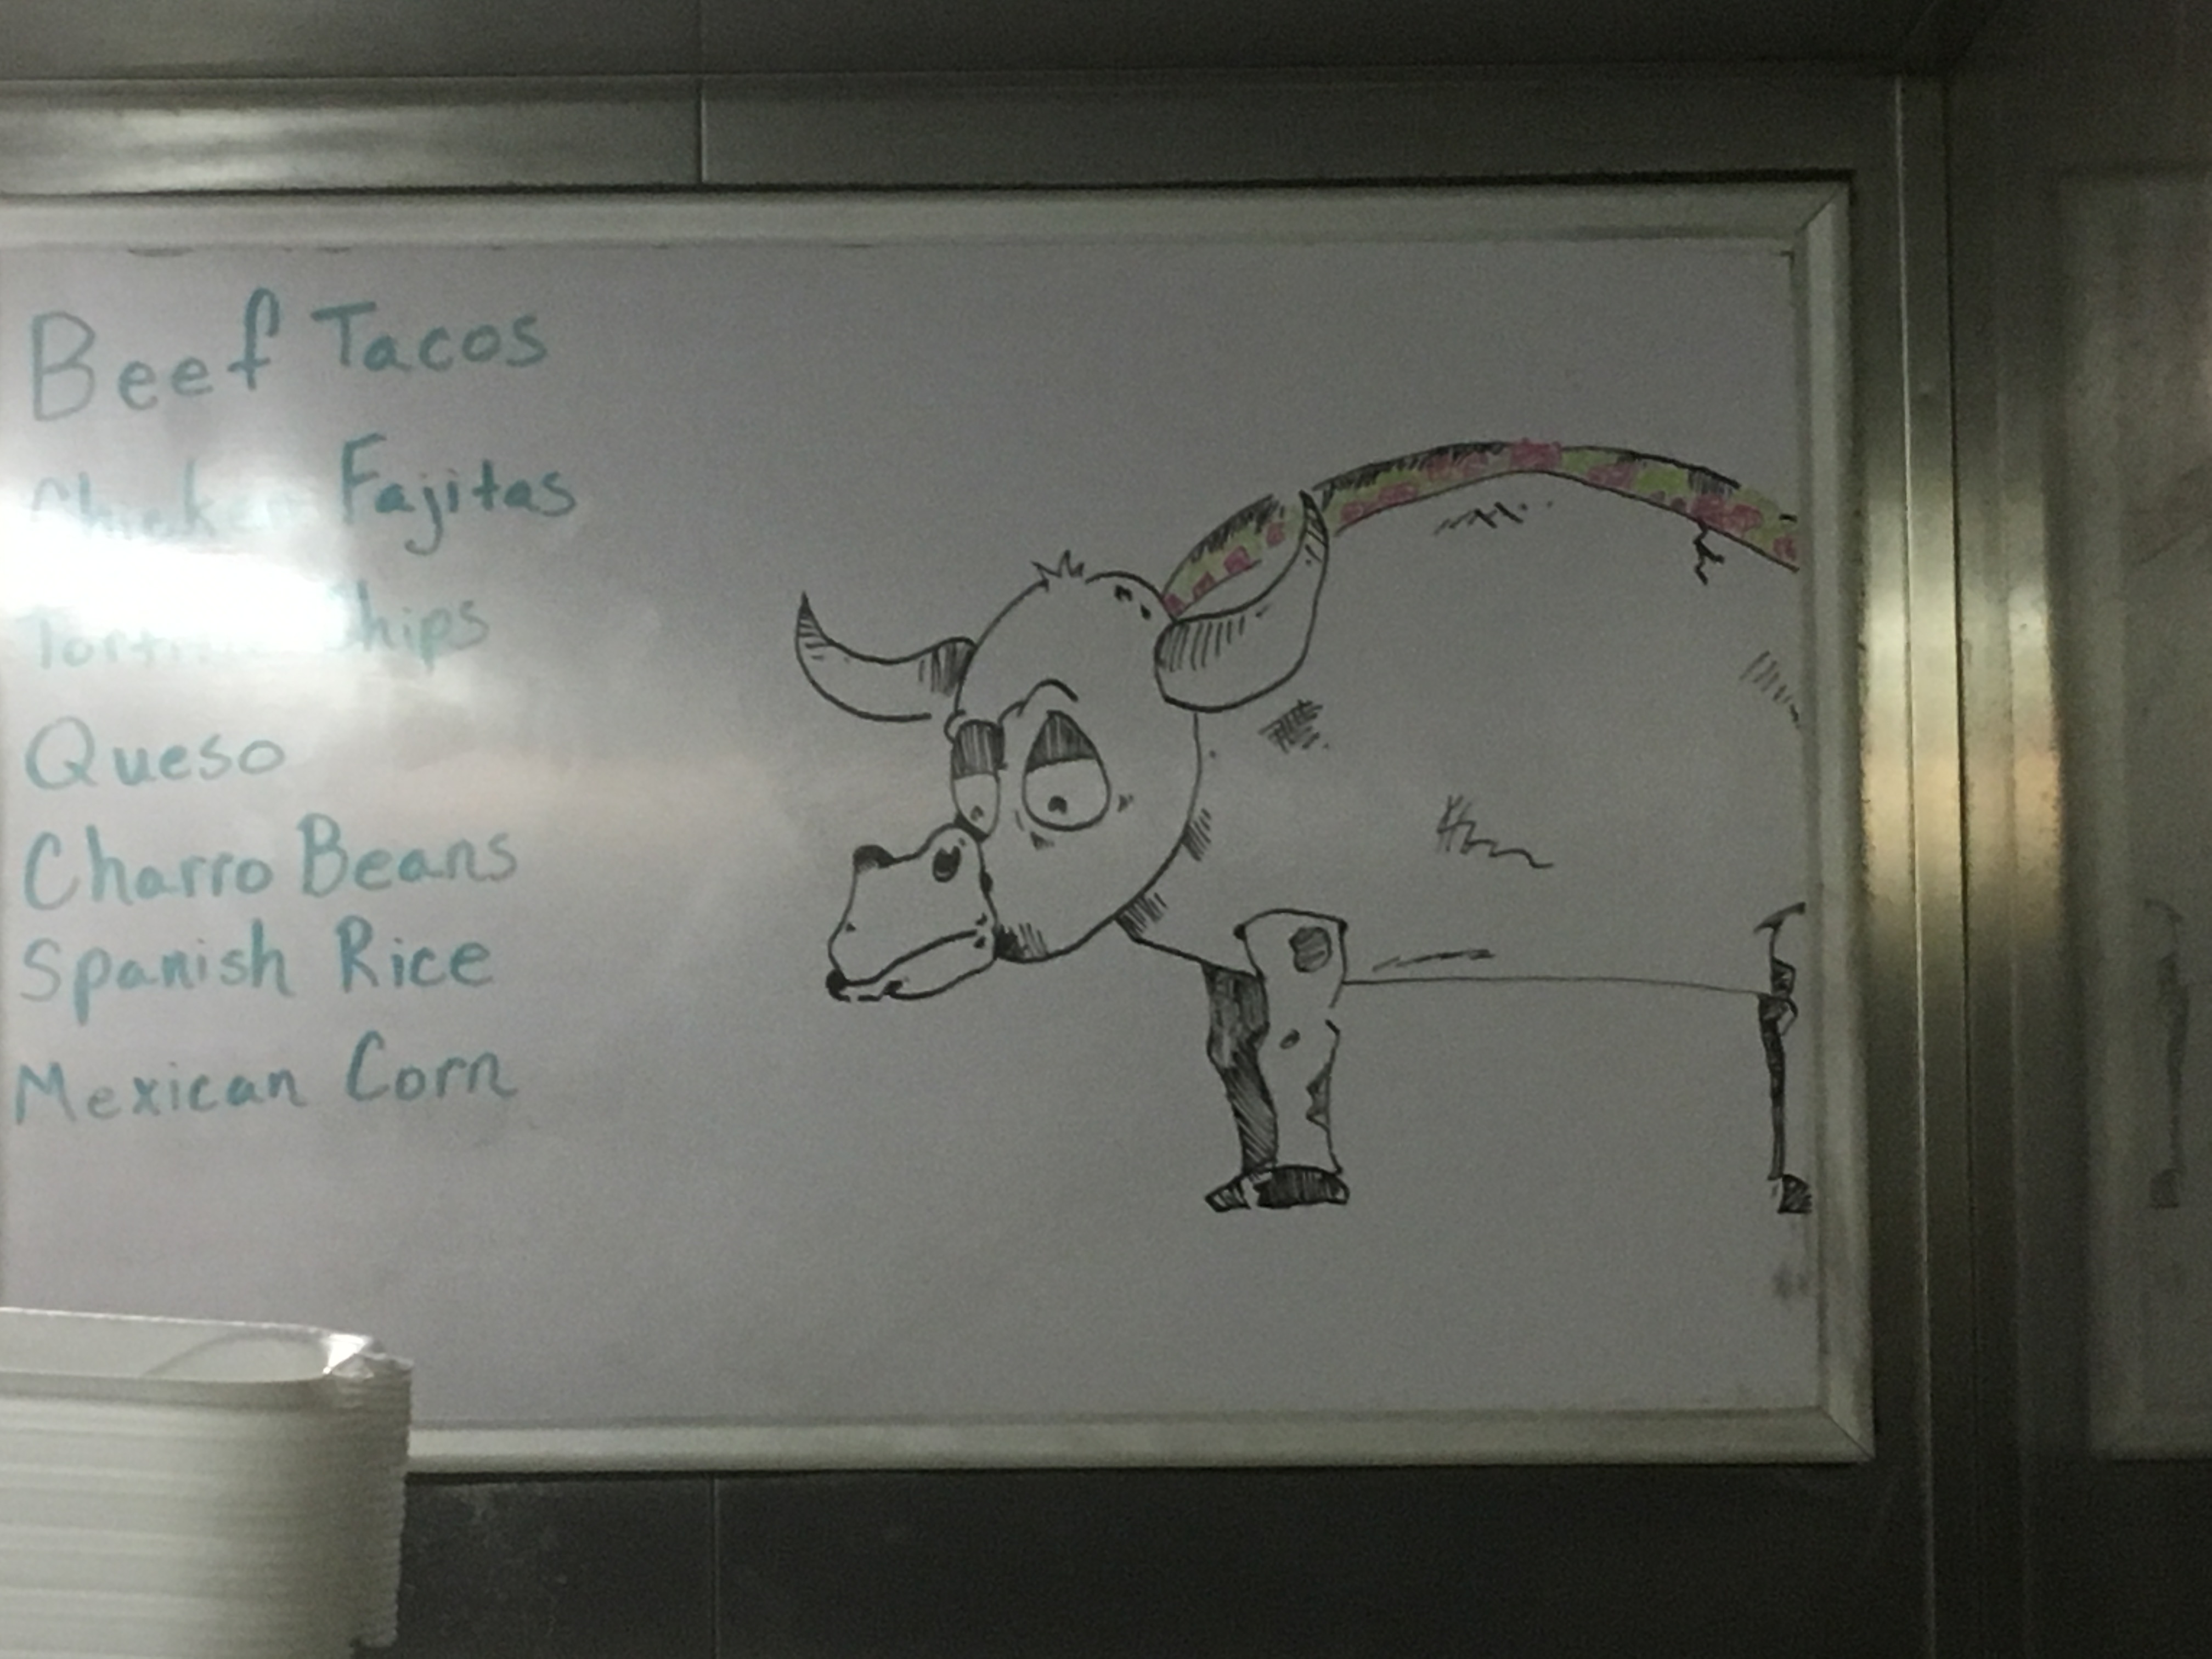 Beef Tacos
Chicken Fajitas
Tortilla Chips
Queso
Charro Beans
Spanish Rice
Mexican Corn